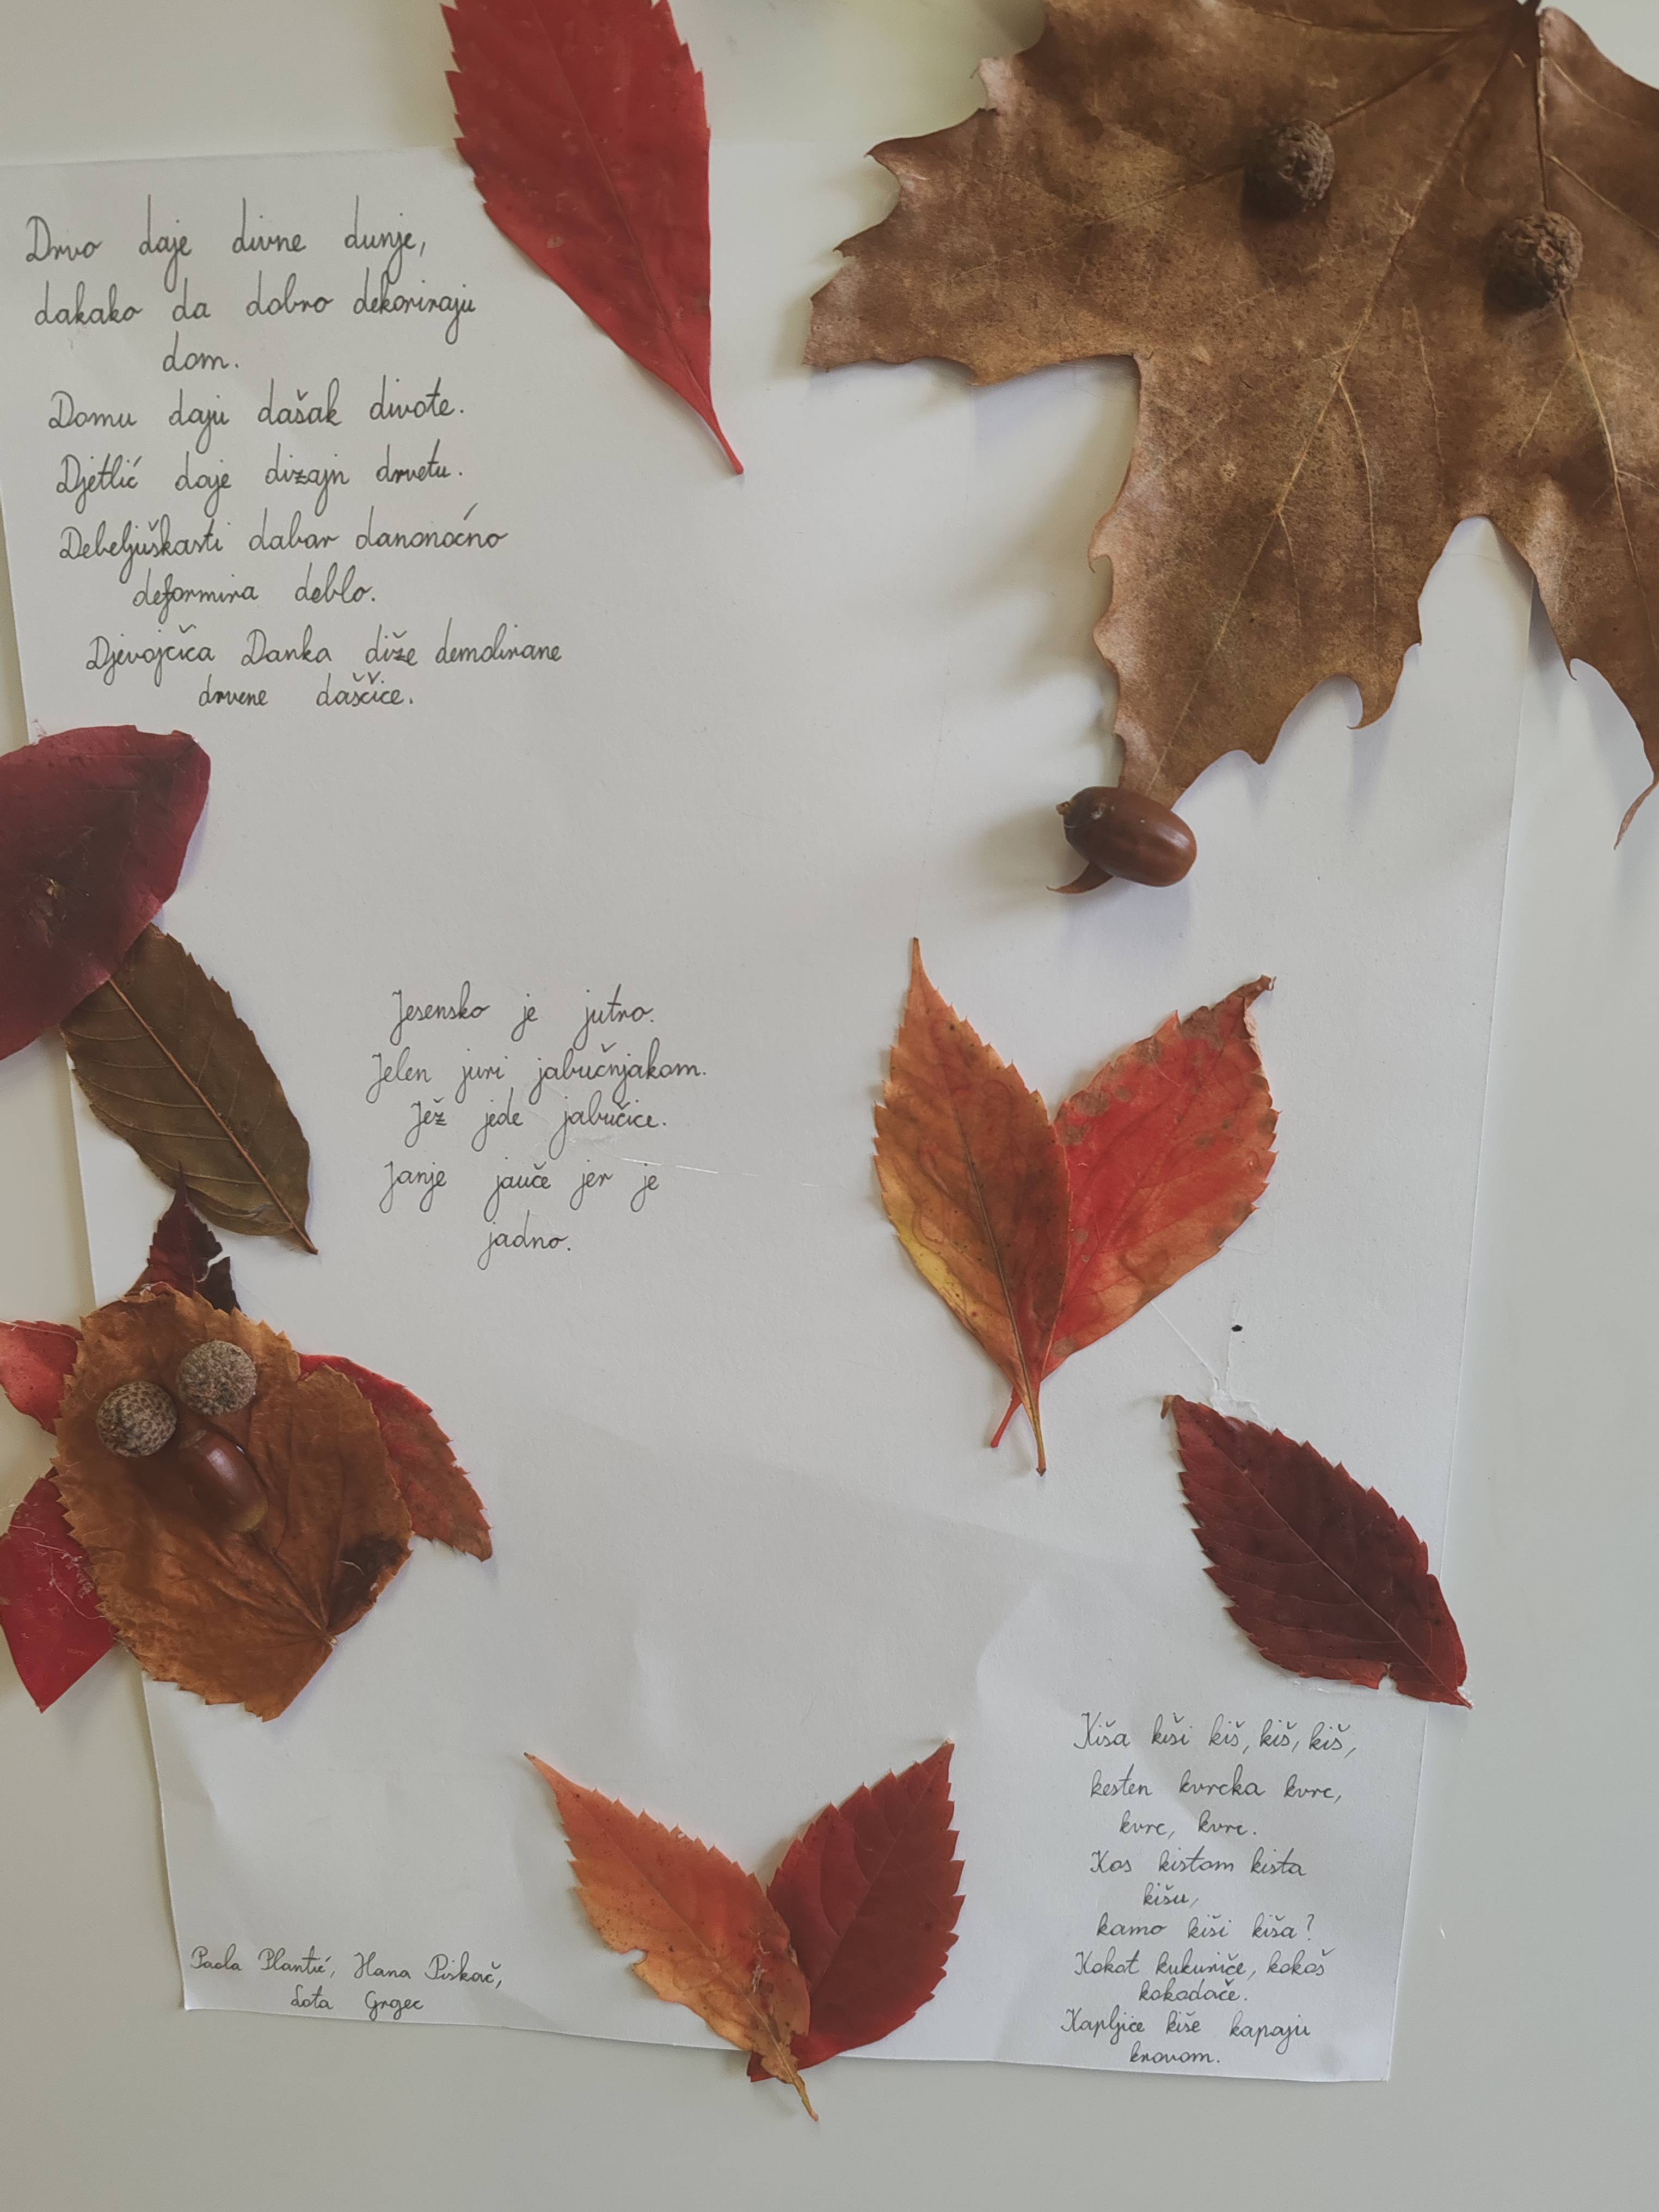 Drvo daje divne dunje,
dakako da dobro dekoriraju
dom.
Domu daju dašak divote.
Djetlić daje dizajn drvetu.
Debeljuškasti dabar danonoćno
deformira deblo.
Djevojčica Danka diže demolirane
drvene daščice.
Jesensko je jutro.
Jelen juri jabučnjakom.
Jež jede jabučice.
Janje jauče jer je
jadno.
Kiša kiši kiš, kiš, kiš,
kesten kvrcka kvrc,
kvrc, kvrc.
Kos kistom kista
kišu,
kamo kiši kiša?
Kokot kukuriče, kokoš
kokodače.
Kapljice kiše kapaju
krovom.
Paola Plantić, Hana Piskač,
Lota Grgec